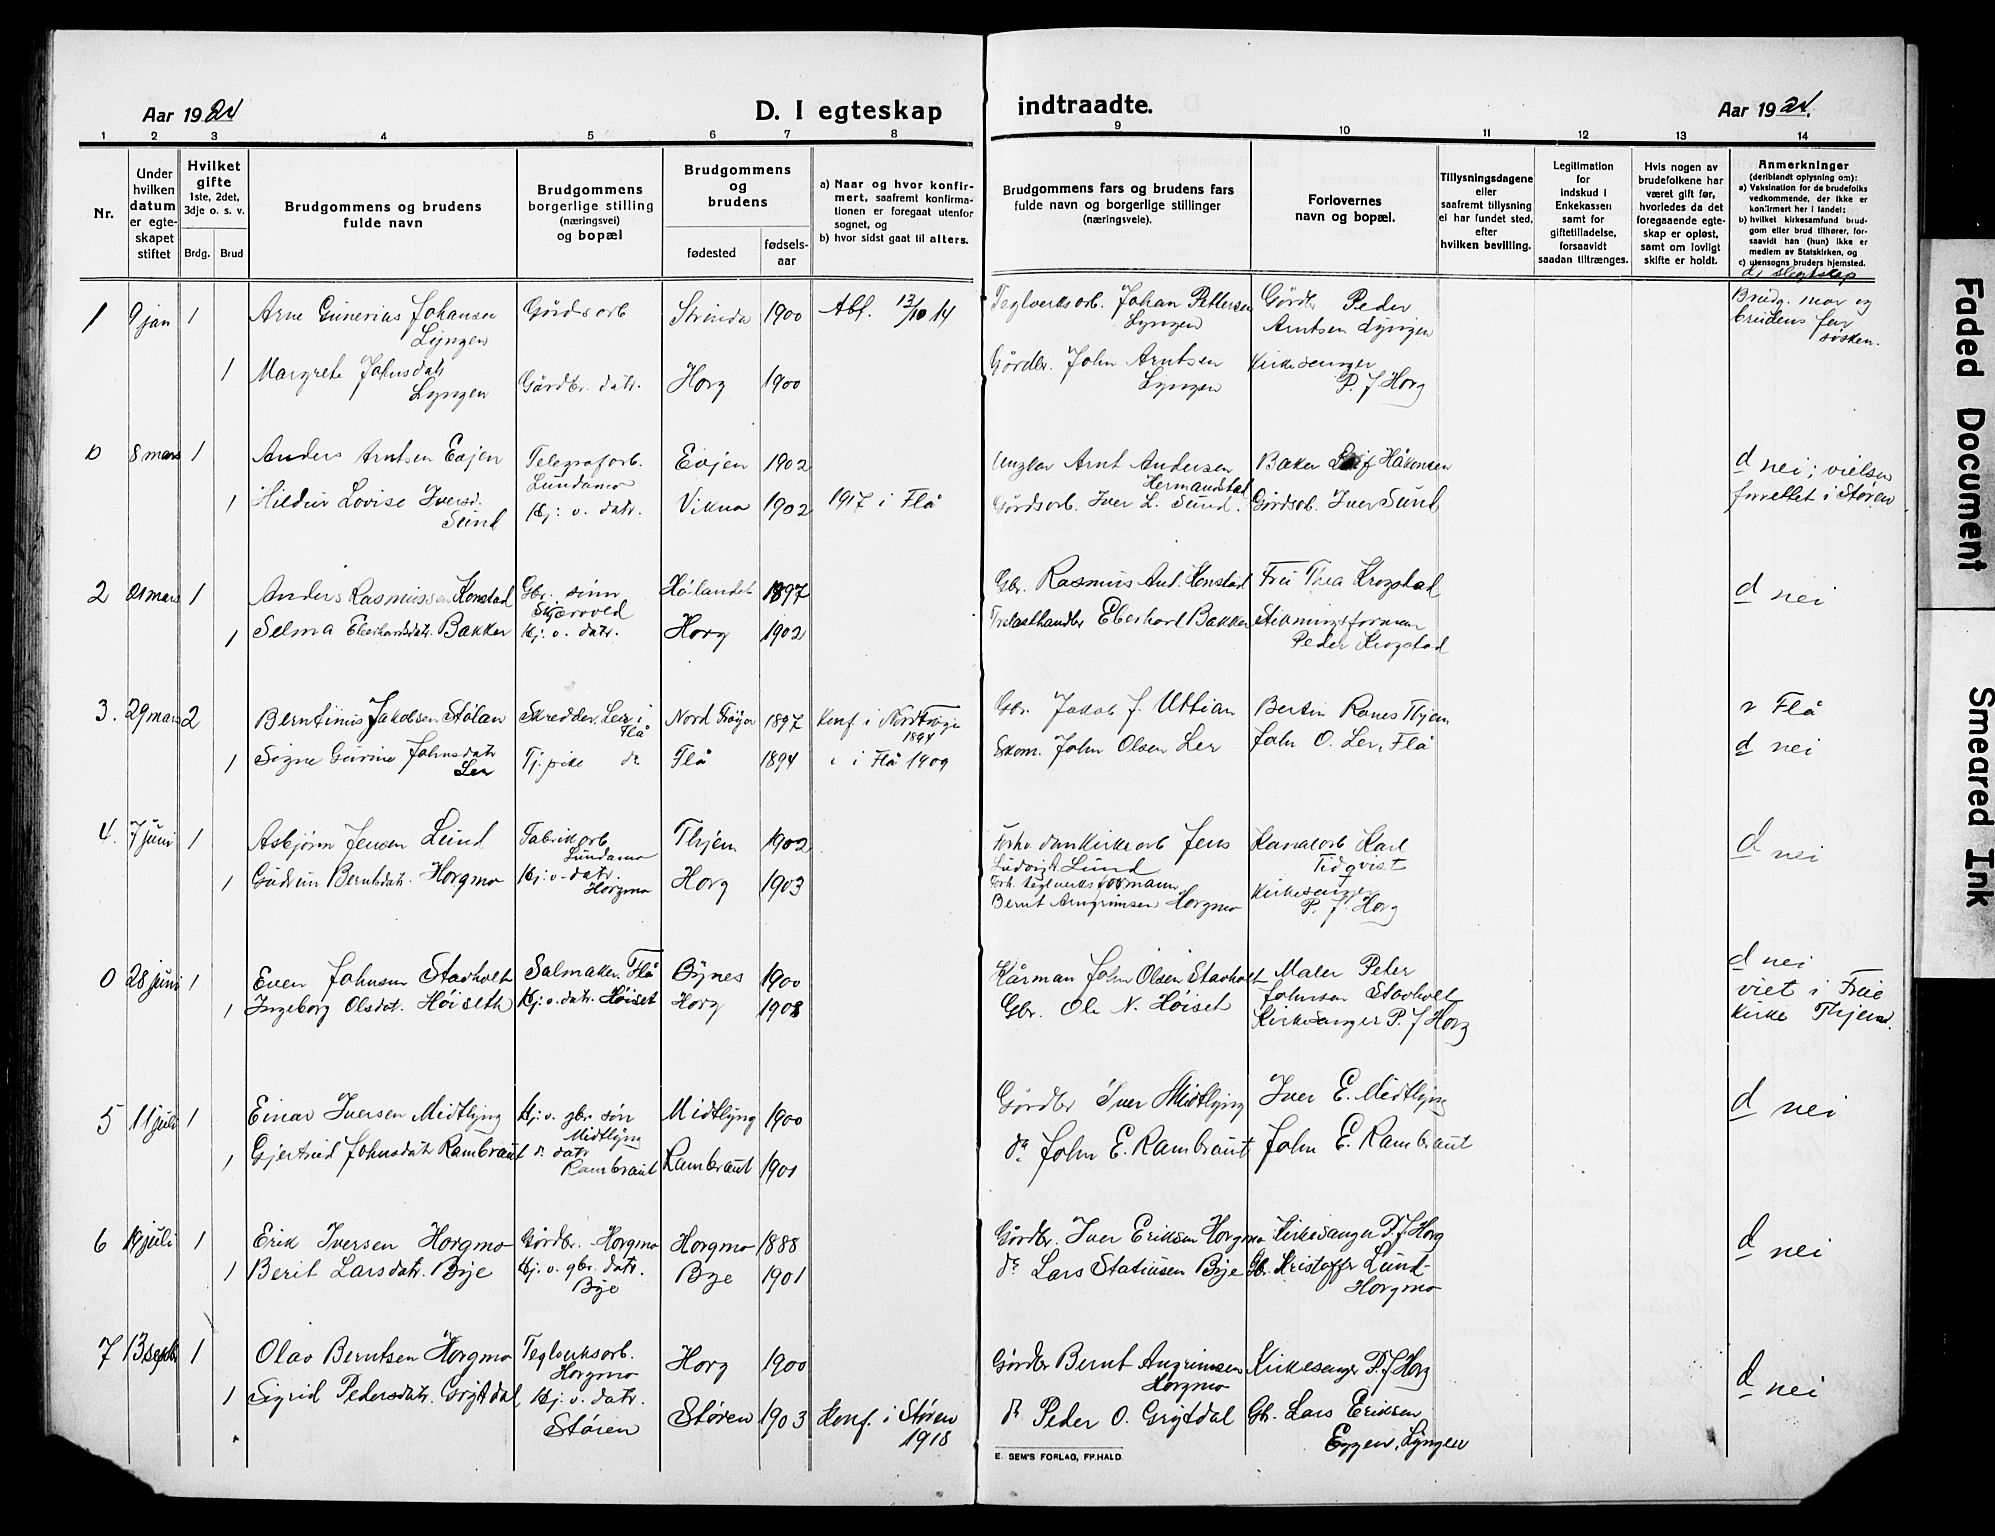 Aar 1924
D. I egteskap
indtraadte.
Aar 1924.
1 2 3 4 5 6 7 8 9 10 11 12 13 14
Nr.
Under hvilken datum er egteskapet stiftet
Hvilket gifte
1ste, 2det, 3dje o. s. v.
Brdg. Brud
Brudgommens og brudens fulde navn
Brudgommens borgerlige stilling (næringsvei) og bopæl
Brudgommens og brudens
fødested
fødsels-aar
a) Naar og hvor konfirmert, saafremt konfirmationen er foregaat utenfor sognet, og
b) hvor sidst gaat til alters.
Brudgommens fars og brudens fars fulde navn og borgerlige stillinger (næringsveie).
Forlovernes navn og bopæl.
Tillysningsdagene eller saafremt tillysning ei har fundet sted, efter hvilken bevilling.
Legitimation for indskud i Enkekassen samt for giftetilladelse, forsaavidt saadan tiltrænges.
Hvis nogen av brudefolkene har været gift før, hvorledes da det foregaaende egteskap er opløst, samt om lovligt skifte er holdt.
Anmerkninger
(deriblandt oplysning om):
a) Vaksination for de brudefolks vedkommende, der ikke er konfirmert her i landet;
b) hvilket kirkesamfund brudgom eller brud tilhører, forsaavidt han (hun) ikke er medlem av Statskirken, og
c) utensogns bruders hjemsted.
d) slegtskap
1 9 jan 1 Arne Gunerius Johansen Lyngen Gårdsarb Strinda 1900 Abf. 13/10 14 Teglverksarb. Johan Pettersen Lyngen Gårdbr. Peder Arntsen Lyngen Brudg. mor og brudens far søsken.
1 Margrete Johnsdatr Lyngen Gårdbr. datr. Horg 1900 Gårdbr. John Arntsen Lyngen Kirkesanger P. J Horg
0 8 mars 1 Anders Arntsen Evjen Telegrafarb. Lundamo Evjen 1902 Ungkar Arnt Andersen Hermanstad Baker Leif Håkensen d nei; vielsen forrettet i Støren
1 Hildur Lovise Iversd. Sund Hj: v. datr. Vikna 1902 1917 i Flå Gårdsarb. Iver L. Sund. Gårdsarb. Iver Sund
2 21 mars 1 Anders Rasmussen Konstad Gbr. sønn Skjærvold Hølandet 1897 Gbr. Rasmus Ant. Konstad Fru Thea Krogstad d nei
1 Selma Eberhardsdatr. Bakker Hj. v. datr. Horg 1902 Trelasthandler Eberhard Bakker Stikningsforman Peder Krogstad
3. 29 mars 2 Berntinus Jakobsen Stølan Skredder, Ler i Flå Nord Frøya 1897 Konf i Nord Frøya 1894 Gbr. Jakob J. Uttian Bertin Ranes Thjem v Flå
1 Signe Gurine Johnsdatr Ler Tj. pike do Flå 1894 i Flå 1909 Skom. John Olsen Ler John O. Ler, Flå d nei
4. 7 juni 1 Asbjørn Jensen Lund Fabrikarb. Lundamo Thjem 1902 Jens Ludvigt Lund Kanalarb Karl Tidqvist d nei
1 Gudrun Berntsdatr. Horgmo Hj. v. datr. Horgmo Horg 1903 Forh. teglverksformann Bernt Arngrimsen Horgmo Kirkesanger P. J. Horg
0 28 juni 1 Even Johnsen Stavholt Salmaker, Flå Bynes 1900 Kårman John Olsen Stavholt Maler Peter Johnsen Stavholt d nei viet i Frue kirke Thjem.
1 Ingeborg Olsdat. Høiseth Hj. v. datr. Høiset Horg 1903 Gbr. Ole N. Høiset Kirkesanger P. J Horg
5 11 juli 1 Einar Iversen Midtlyng Hj. v. gbr. søn Midtlyng Midtlyng 1900 Gårdbr Iver Midtlyng Iver E. Midtlyng d nei
1 Gjertrud Johnsdatr Rambraut do datr Rambraut Rambraut 1901 do John E. Rambraut John E. Rambraut
6 19 juli 1 Erik Iversen Horgmo Gårdbr. Horgmo Horgmo 1888 Gårdbr. Iver Eriksen Horgmo Kirkesanger P. J Horg d nei
1 Berit Larsdatr. Bye Hj. v. gbr. datr. Bye Bye 1901 do Lars Statinsen Bye Gb. Kristoffer Lund Horgmo
7 13 septbr 1 Olav Berntsen Horgmo Teglverksarb. Horgmo Horg 1900 Gårdbr Bernt Angrimsen Horgmo Kirkesanger P. J Horg d nei
1 Sigrid Pedersdatr. Grytdal Hj. v. datr. Støren Støren 1903 Konf. i Støren 1918 do Peder O. Grytdal Gb. Lars Eriksen Eggen, Lyngen
E. SEM'S FORLAG, FR.HALD
Faded Document
Smeared Ink